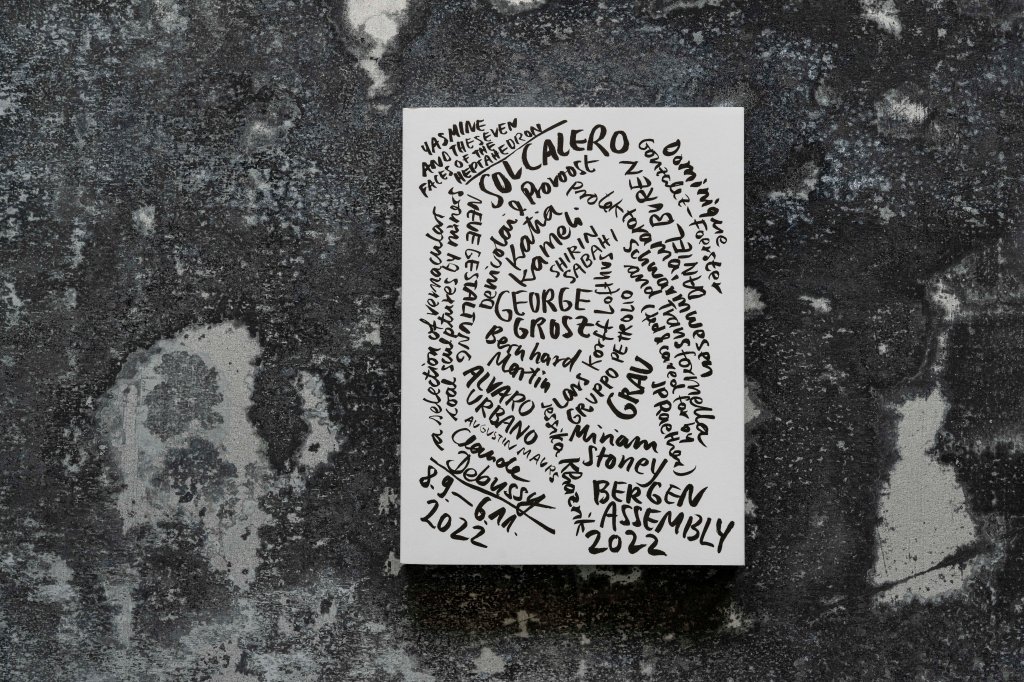 YASMINE
AND THE SEVEN
FACES OF THE
HEPTAHEDRON
SOL CALERO
Dominique
Gonzalez-Foerster
DANIEL BUREN
Denicolai & Provoost
proLektaramaschwarmwesen
and Transformella
(fed & cared for by
JP Raether)
a selection of vernacular
coal sculptures by miners
NEUE GESTALTUNG
Katia
Kameli
SHIRIN
SABAHI
GEORGE
GROSZ
Bernhard
Martin
Lars Korff Lofthus
GRUPPO PETROLIO
GRAU
ALVARO
URBANO
AUGUSTIN MAURS
Jessika Khazrik
Miriam
Stoney
Claude
Debussy
8.9—6.11.
2022
BERGEN
ASSEMBLY
2022